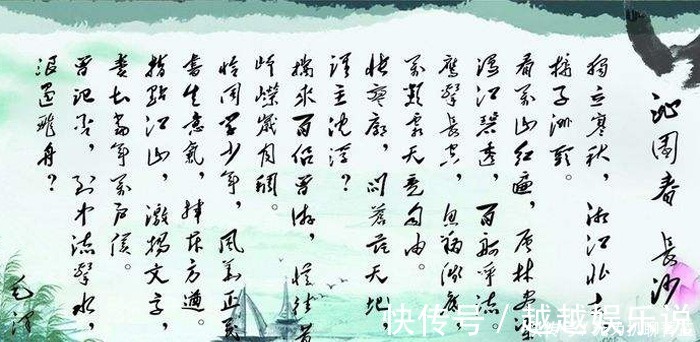 沁园春 长沙
独立寒秋，湘江北去
橘子洲头。
看万山红遍，层林尽染
漫江碧透，百舸争流
鹰击长空，鱼翔浅底，
万类霜天竞自由。
怅寥廓，问苍茫天地，
谁主沉浮？
携来百侣曾游，忆往昔
峥嵘岁月稠。
恰同学少年，风华正茂
书生意气，挥斥方遒。
指点江山，激扬文字，
粪土当年万户侯。
曾记否，到中流击水，
浪遏飞舟？
毛泽
快传号／越越娱乐说